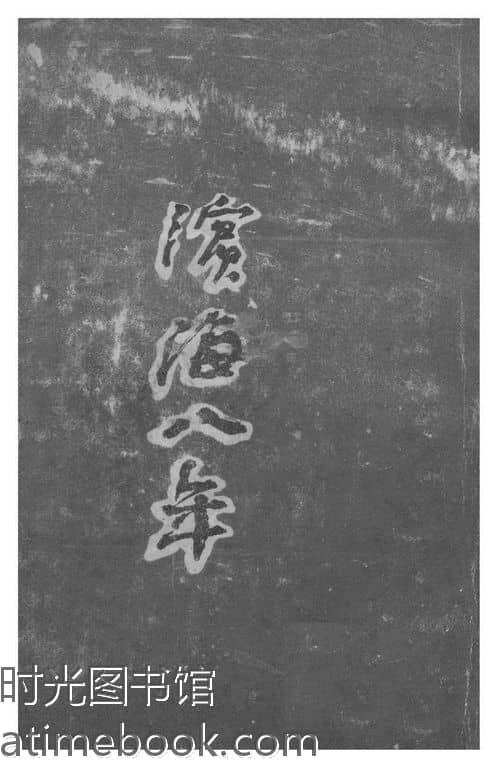 濱海八年
时光图书馆
atimebook.com